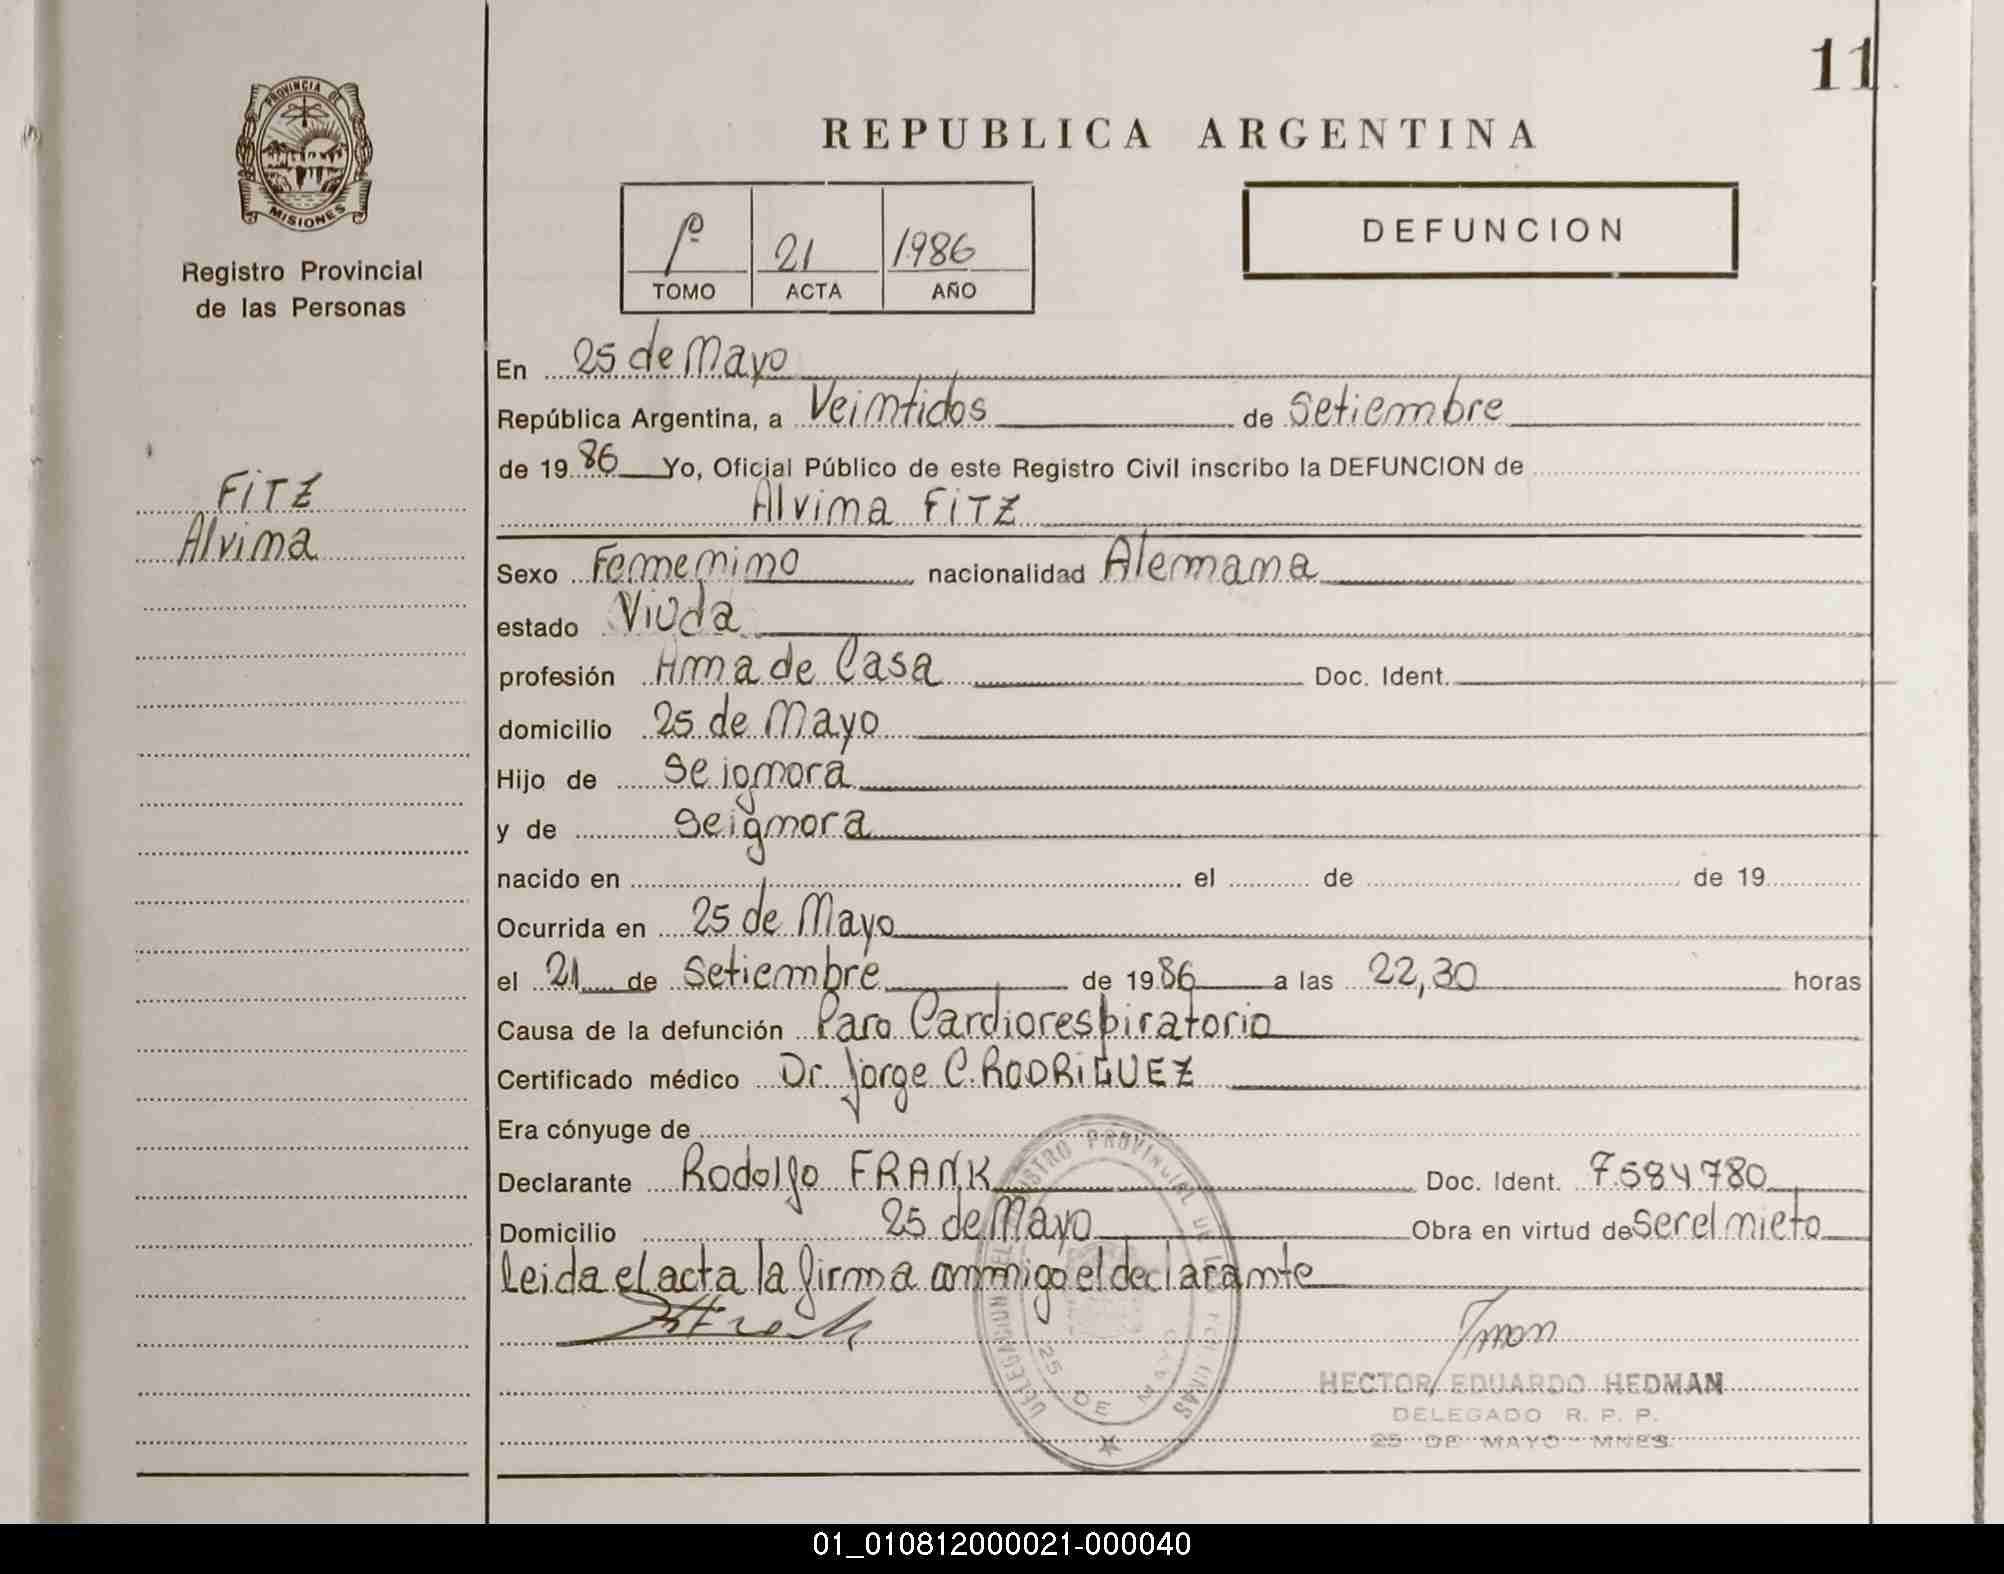 11
PROVINCIA DE
MISIONES
Registro Provincial
de las Personas
REPUBLICA ARGENTINA
1º 21 1986
TOMO ACTA AÑO
DEFUNCION
FITZ
Alvina
En 25 de Mayo
República Argentina, a Veintidos de Setiembre
de 1986 Yo, Oficial Público de este Registro Civil inscribo la DEFUNCION de
Alvina FITZ
Sexo Femenino nacionalidad Alemana
estado Viuda
profesión Ama de Casa Doc. Ident.
domicilio 25 de Mayo
Hijo de Se ignora
y de Se ignora
nacido en el de de 19
Ocurrida en 25 de Mayo
el 21 de Setiembre de 1986 a las 22,30 horas
Causa de la defunción Paro Cardiorespiratorio
Certificado médico Dr. Jorge C. RODRIGUEZ
Era cónyuge de
Declarante Rodolfo FRANK Doc. Ident. 7.584780
Domicilio 25 de Mayo Obra en virtud de ser el nieto
Leida el acta la firma conmigo el declarante
DELEGACION DEL REGISTRO PROVINCIAL DE LAS PERSONAS
25 DE MAYO
HECTOR EDUARDO HEDMAN
DELEGADO R. P. P.
25 DE MAYO - MNES.
01_010812000021-000040